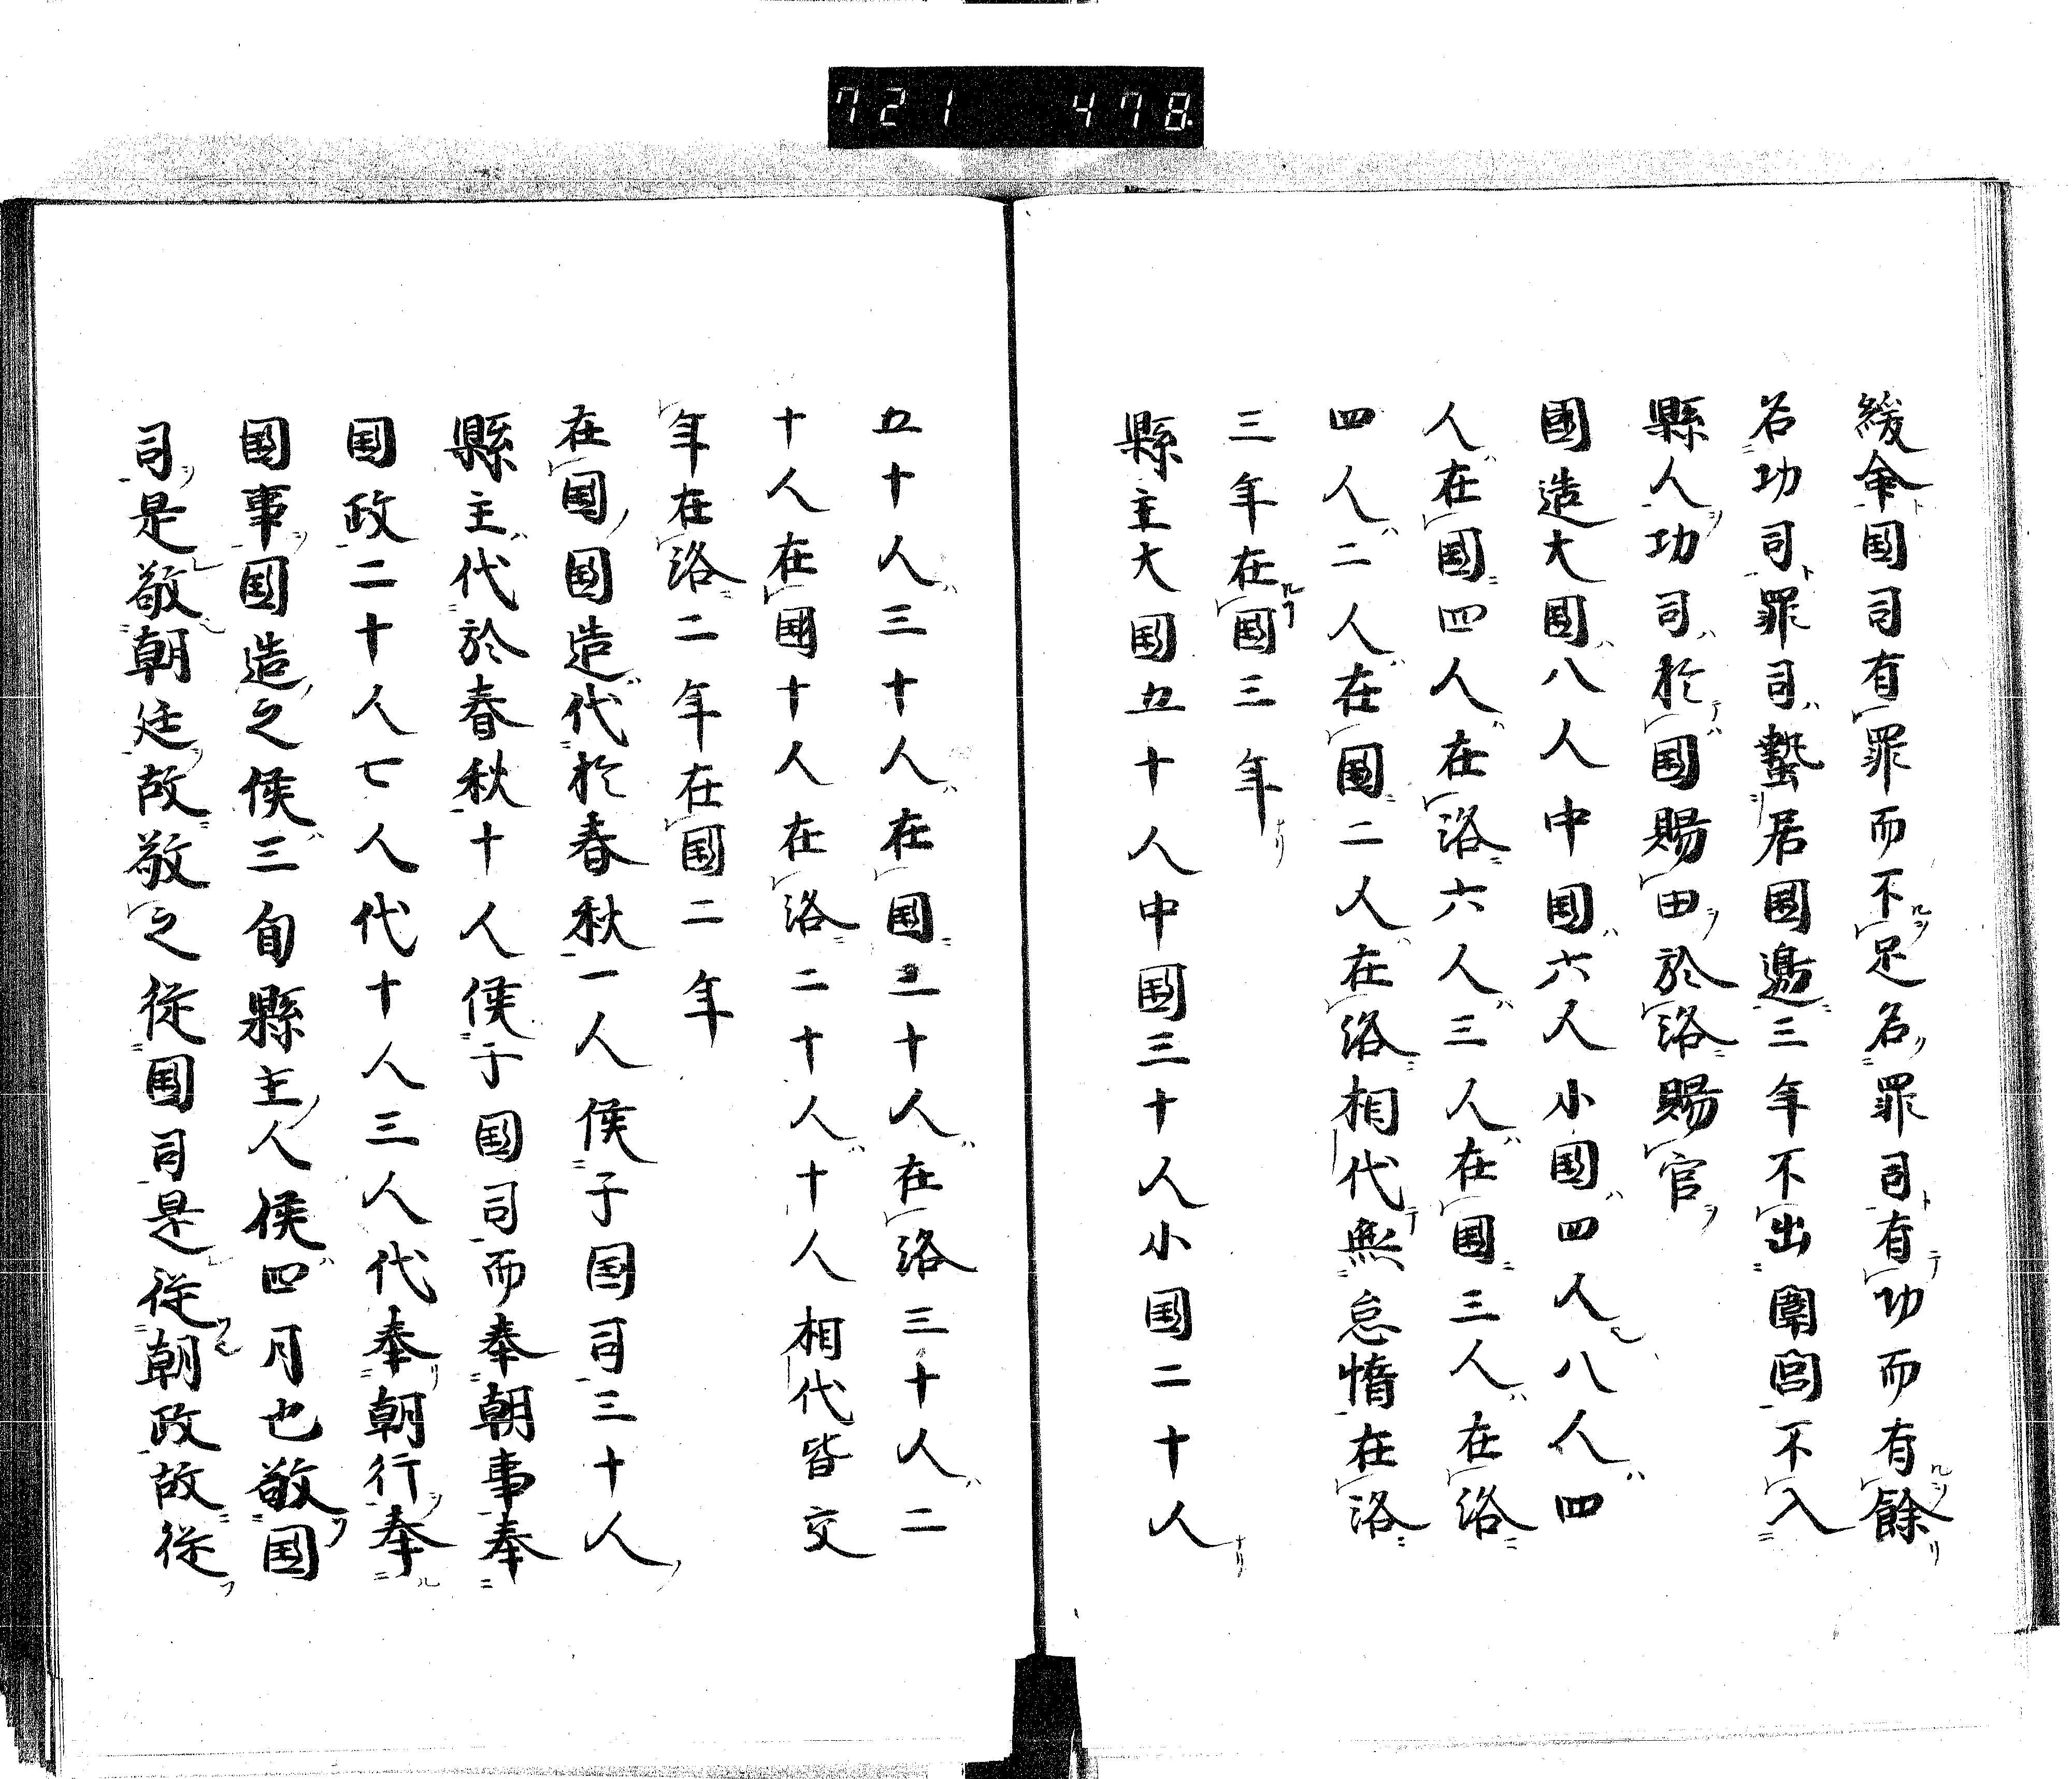 721 478
緩命国司有罪而不足名罪司有功而有餘
名功司罪司蟄居国邀三年不出圍宮不入
縣人功司於国賜田於洛賜官
國造大国八人中国六人小国四人八人四
人在国四人在洛六人三人在国三人在洛
四人二人在国二人在洛相代無怠惰在洛
三年在国三年
縣主大国五十人中国三十人小国二十人
五十人三十人在国二十人在洛三十人二
十人在国十人在洛二十人十人相代皆交
年在洛二年在国二年
在国国造代於春秋一人候于国司三十人
縣主代於春秋十人候于国司而奉朝事奉
国政二十人七人代十人三人代奉朝行奉
国事国造之候三旬縣主人候四月也敬国
司是敬朝廷故敬之從国司是從朝政故從